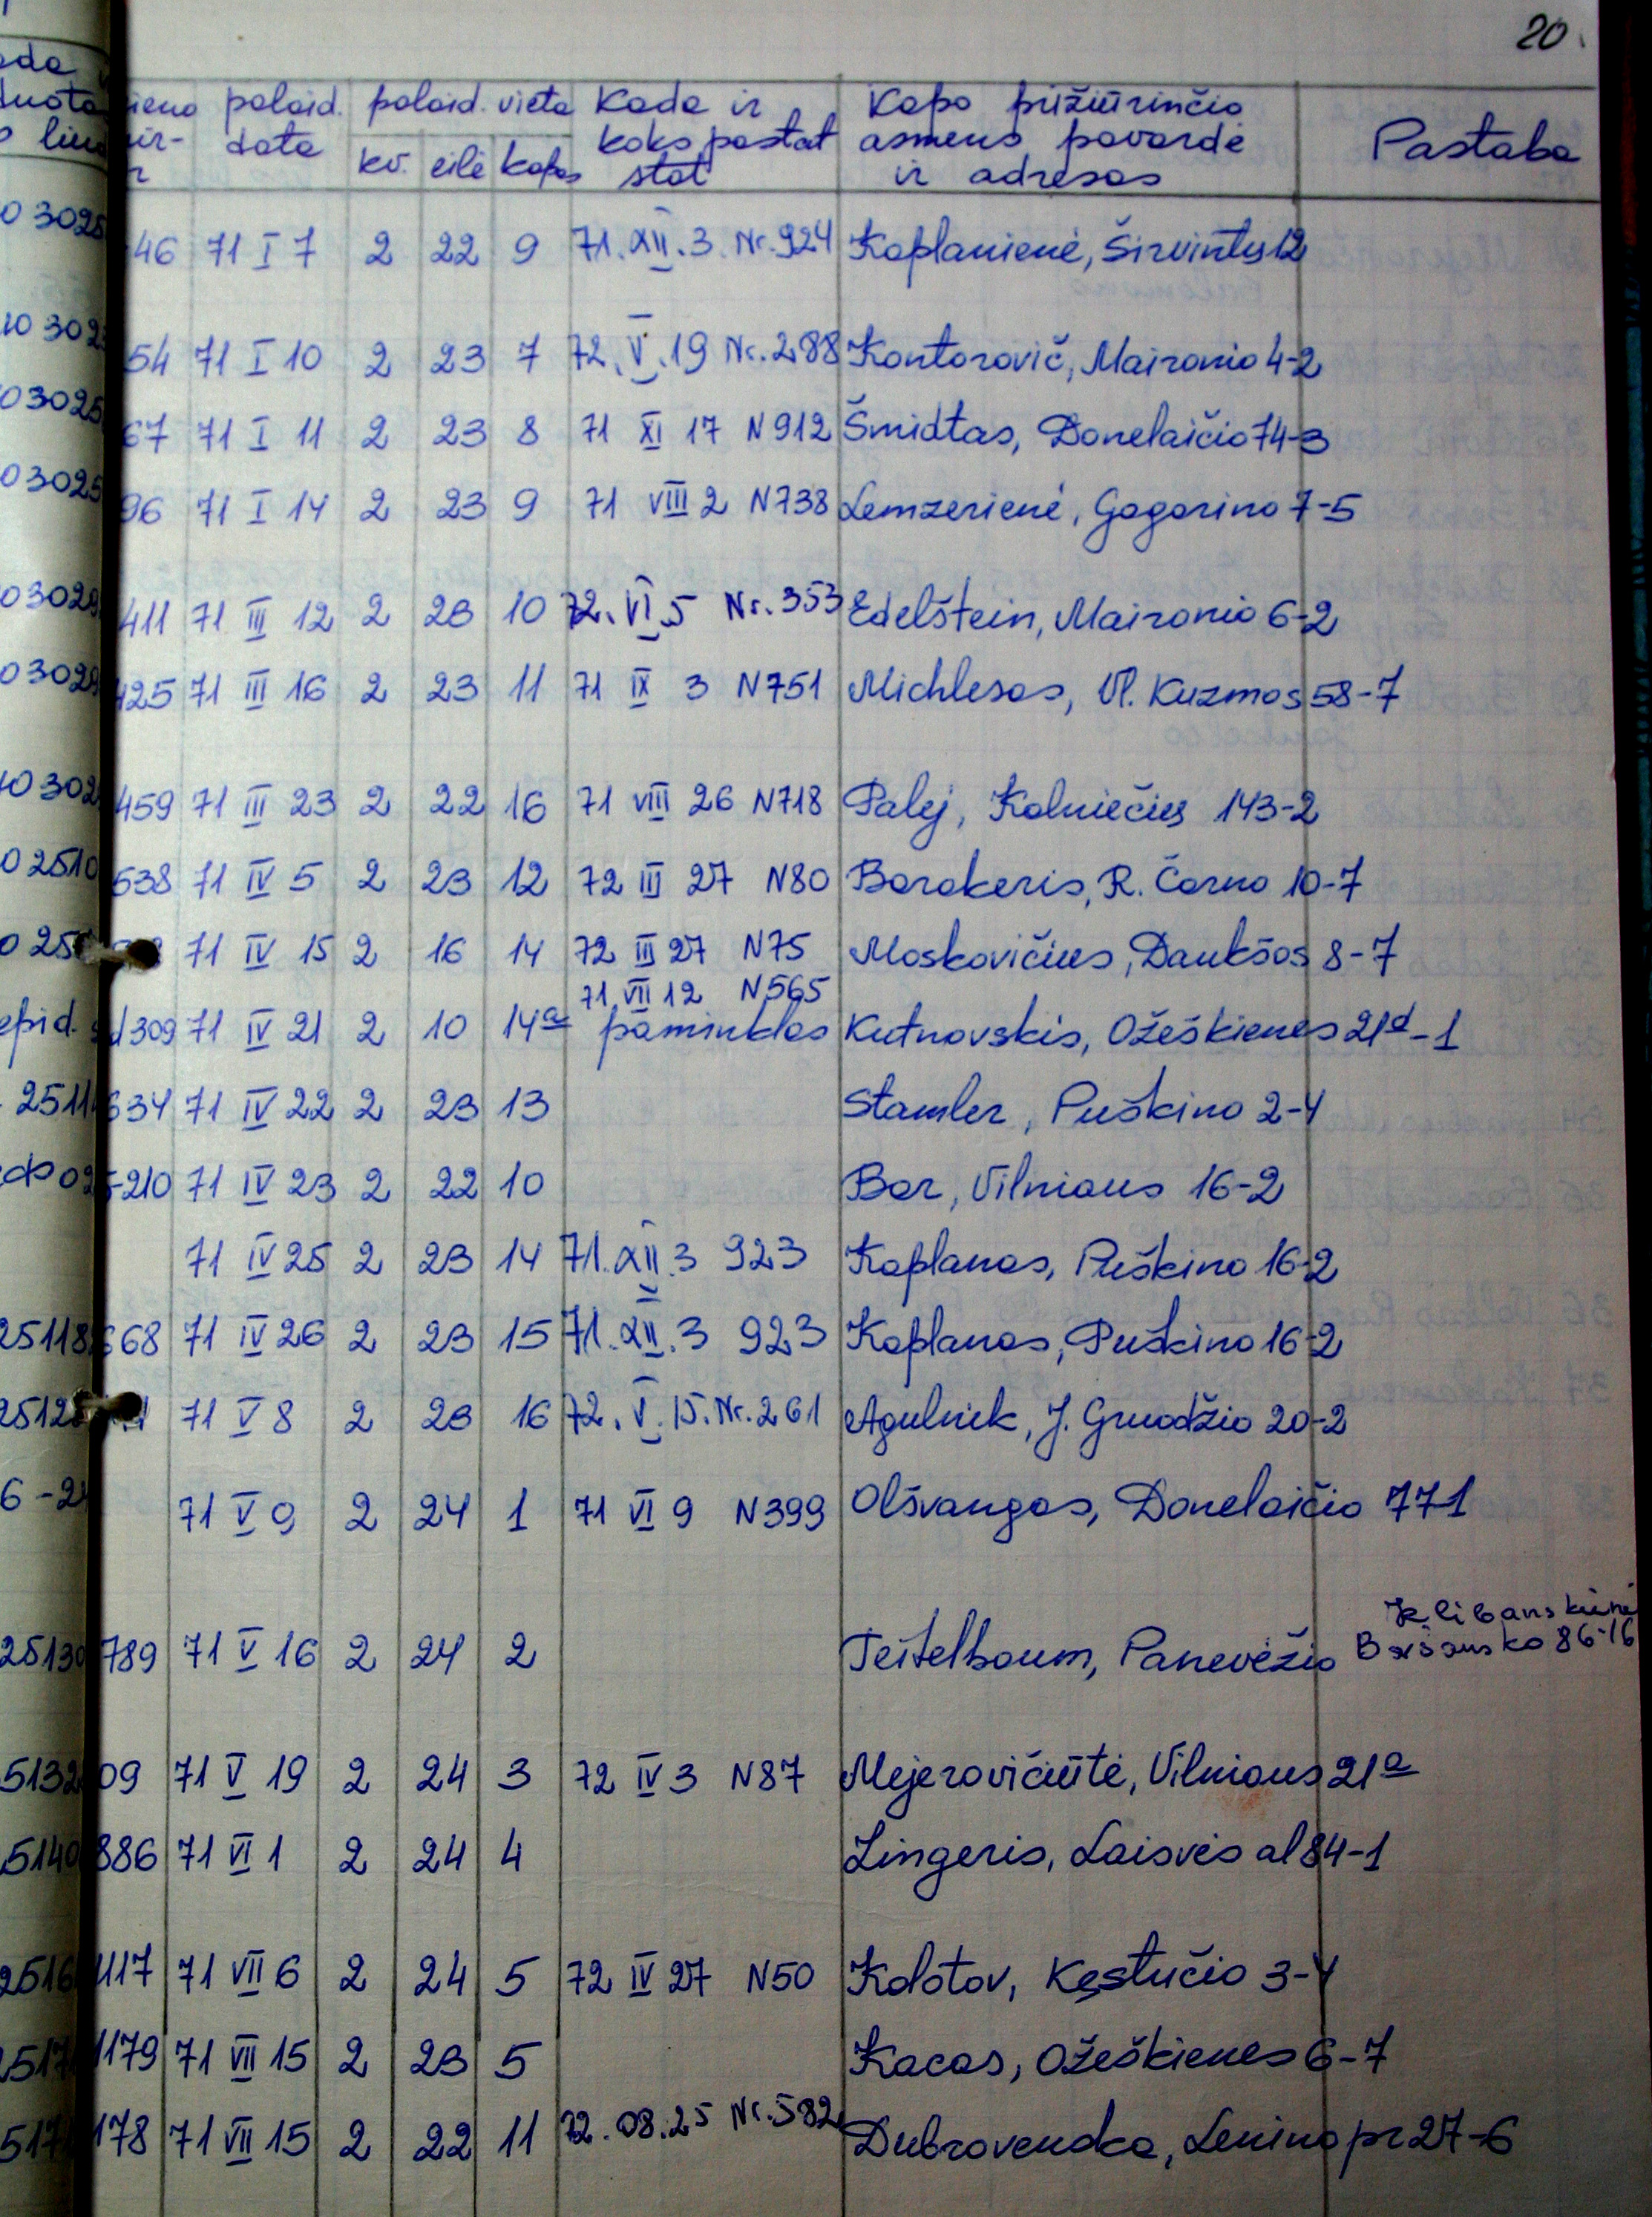 20.
palaid. data
palaid. vieta
kv. eilė kapas
Kada ir koks pastat stat
Kapo prižiūrinčio asmens pavardė ir adresas
Pastaba
46 71 I 7 2 22 9 71. XII. 3. Nr. 924 Kaplanienė, Širvintų 12
54 71 I 10 2 23 7 72. V. 19 Nr. 288 Kontorovič, Maironio 4-2
67 71 I 11 2 23 8 71 XI 17 N 912 Šmidtas, Donelaičio 74-3
96 71 I 14 2 23 9 71 VIII 2 N738 Lemzerienė, Gagarino 7-5
411 71 III 12 2 23 10 72. VI. 5 Nr. 353 Edelštein, Maironio 6-2
425 71 III 16 2 23 11 71 IX 3 N751 Michlesas, Vl. Kuzmos 58-7
459 71 III 23 2 22 16 71 VIII 26 N718 Palej, Kalniečių 143-2
538 71 IV 5 2 23 12 72 III 27 N80 Borokeris, R. Čarno 10-7
71 IV 15 2 16 14 72 III 27 N75 Moskovičius, Daukšos 8-7
71 VII 12 N565
d309 71 IV 21 2 10 14a paminklas Kutnovskis, Ožeškienės 21d-1
634 71 IV 22 2 23 13 Stamler, Puškino 2-4
-210 71 IV 23 2 22 10 Bar, Vilniaus 16-2
71 IV 25 2 23 14 71. XII. 3 923 Kaplanas, Puškino 16-2
668 71 IV 26 2 23 15 71. XII. 3 923 Kaplanas, Puškino 16-2
71 V 8 2 23 16 72. V. 15. Nr. 261 Agulnik, J. Gruodžio 20-2
71 V 9 2 24 1 71 VI 9 N399 Olšvangas, Donelaičio 771
Klibanskienė
789 71 V 16 2 24 2 Teitelbaum, Panevėžio Baršausko 86-16
09 71 V 19 2 24 3 72 IV 3 N87 Mejerovičiūtė, Vilniaus 21a
886 71 VI 1 2 24 4 Lingeris, Laisvės al 84-1
1117 71 VII 6 2 24 5 72 IV 27 N50 Kolotov, Kęstučio 3-4
1179 71 VII 15 2 23 5 Kacas, Ožeškienės 6-7
178 71 VII 15 2 22 11 72. 08. 25 Nr. 582 Dubrovenoka, Lenino pr 27-6